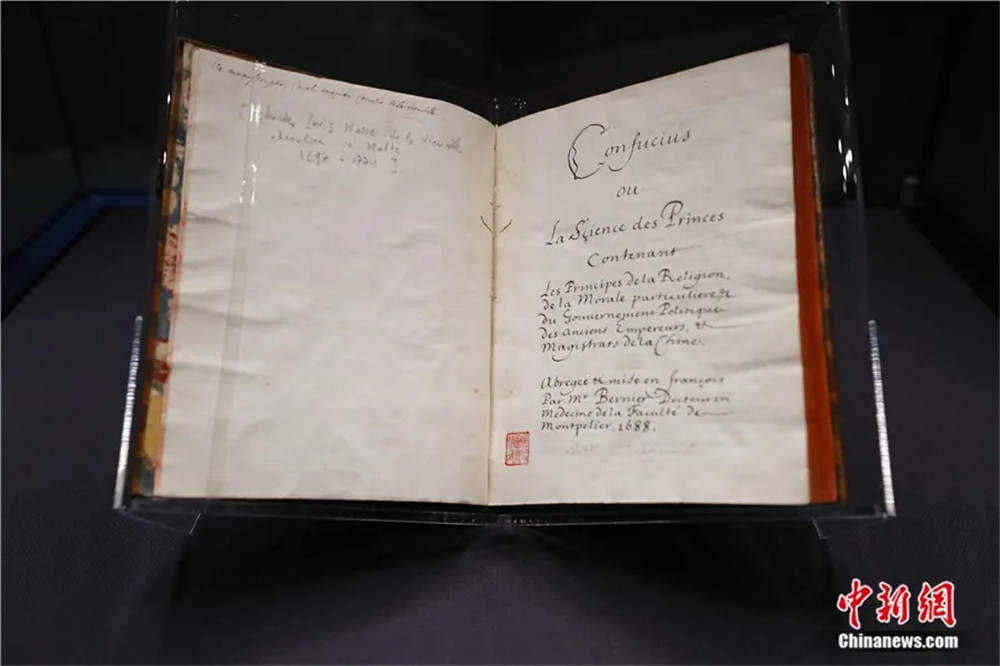 1697 - 1771 ]
Confucius
ou
La Science des Princes
Contenant
Les Principes de la Religion,
de la Morale particuliere &
du Gouvernement Politique
des anciens Empereurs, &
Magistrats de la Chine.
Abregée & mise en françois
Par Mr. Bernier Docteur en
Medecine de la Faculté de
Montpelier, 1688.
中新网
Chinanews.com